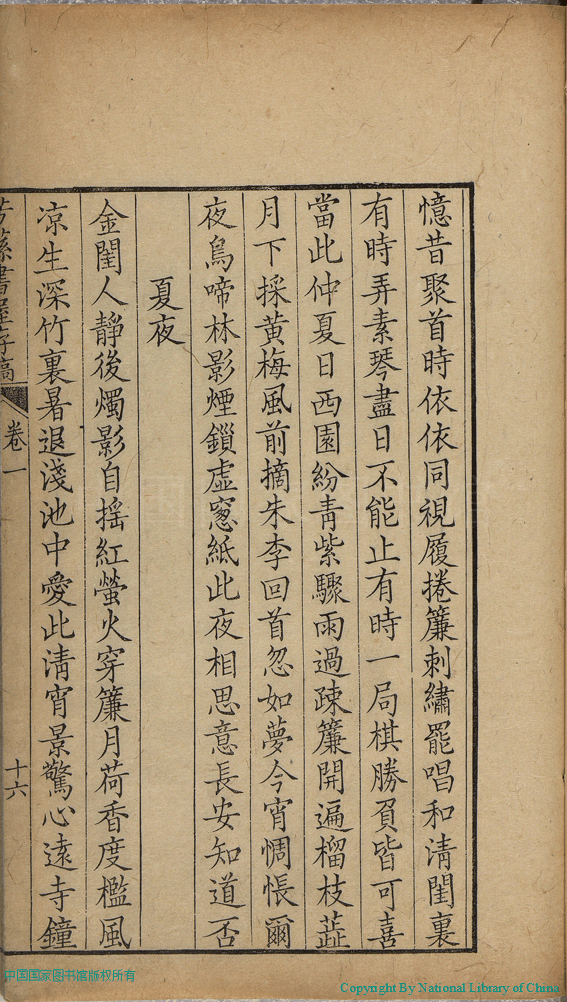 憶昔聚首時依依同視履捲簾刺繡罷唱和淸閨裏
有時弄素琴盡日不能止有時一局棋勝負皆可喜
當此仲夏日西園紛靑紫驟雨過疎簾開遍榴枝蕋
月下採黄梅風前摘朱李回首忽如夢今宵惆悵爾
夜烏啼林影煙鎖虛窻紙此夜相思意長安知道否
夏夜
金閨人靜後燭影自搖紅螢火穿簾月荷香度檻風
凉生深竹裏暑退淺池中愛此淸宵景驚心遠寺鐘
書屋存稿
卷一
十六
中国国家图书馆版权所有
Copyright By National Library of China